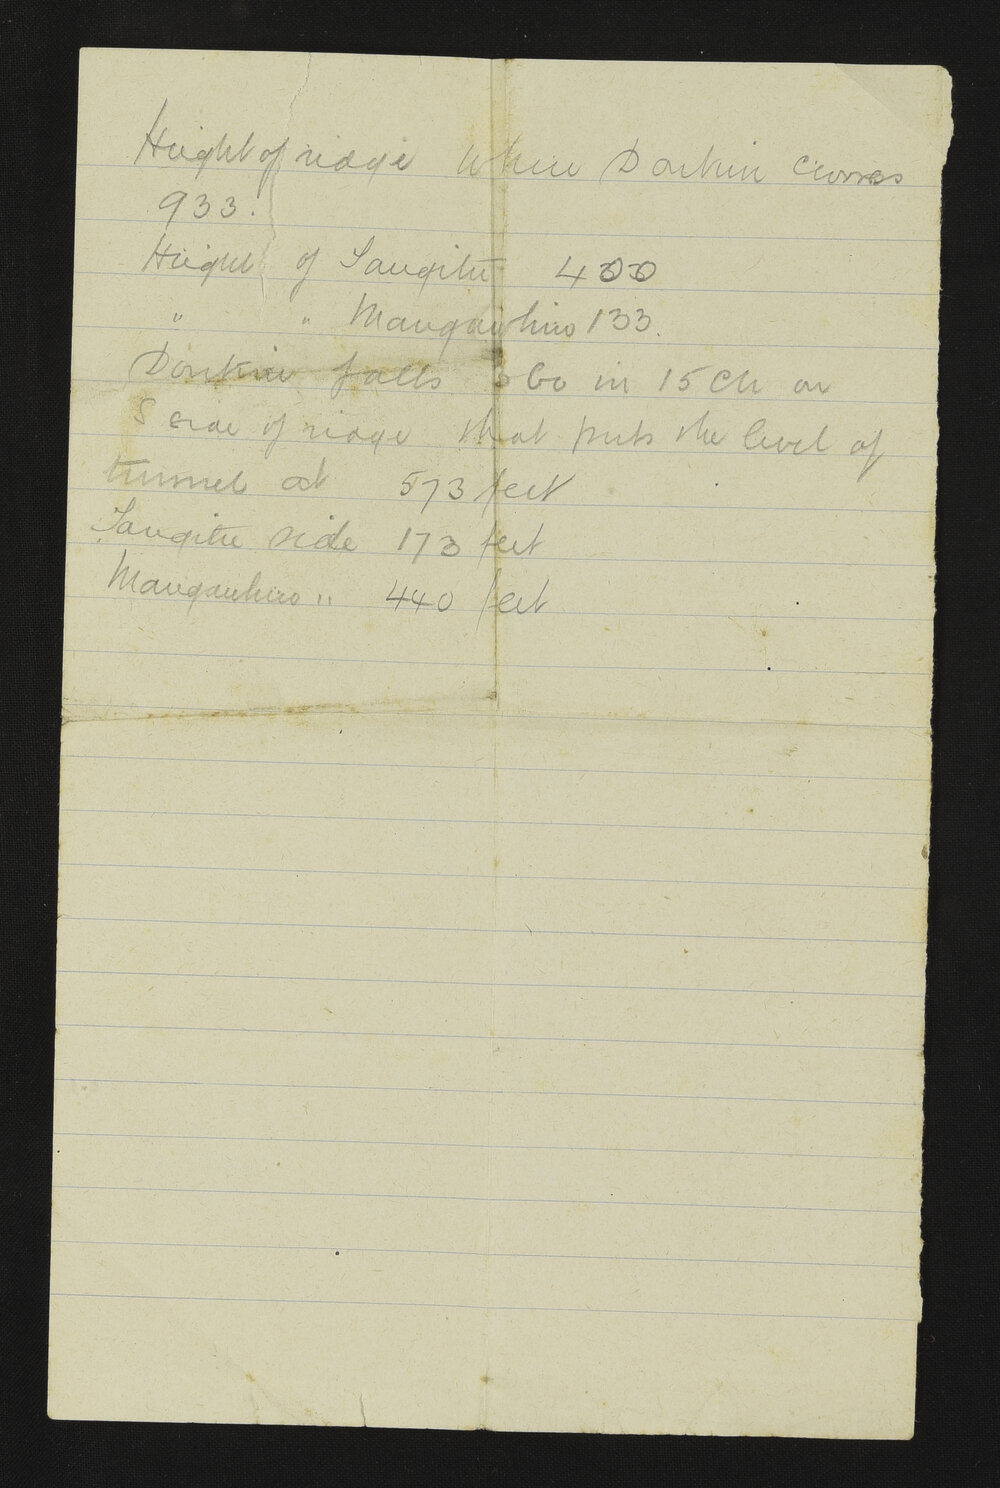 Height of ridge where Donkin crosses
933.
Height of Tangitu 400
" " Mangawhiro 133.
Donkin falls 360 in 15 Ch on
S side of ridge that puts the level of
tunnel at 573 feet
Tangitu side 173 feet
Mangawhiro " 440 feet